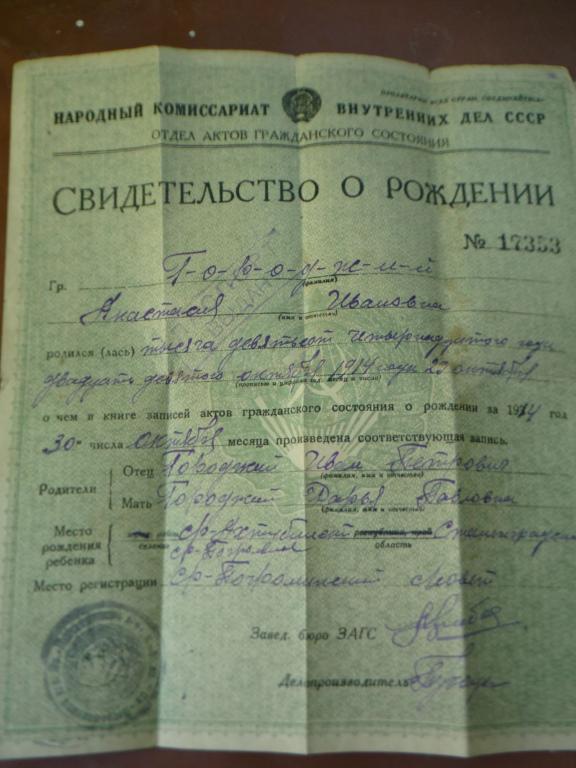 ПРОЛЕТАРИИ ВСЕХ СТРАН, СОЕДИНЯЙТЕСЬ!
НАРОДНЫЙ КОМИССАРИАТ ВНУТРЕННИХ ДЕЛ СССР
ОТДЕЛ АКТОВ ГРАЖДАНСКОГО СОСТОЯНИЯ
СВИДЕТЕЛЬСТВО О РОЖДЕНИИ
№ 17353
Гр. Г-о-р-о-д-ж-и-й
(фамилия)
Анастасия Ивановна
(имя и отчество)
родился (лась) тысяча девятьсот четырнадцатого года
двадцать девятого октября 1914 года 29 октября
(прописью и цифрами год, месяц и число)
о чем в книге записей актов гражданского состояния о рождении за 1914 год
30 числа октября месяца произведена соответствующая запись.
Родители
Отец Городжий Иван Петрович
(фамилия, имя и отчество)
Мать Городжий Дарья Павловна
(фамилия, имя и отчество)
Место рождения ребенка
ср-Ахтубинский республика, край Сталинградская
селение ср-Погромное область
Место регистрации ср-Погроминский совет
Завед. бюро ЗАГС
Делопроизводитель